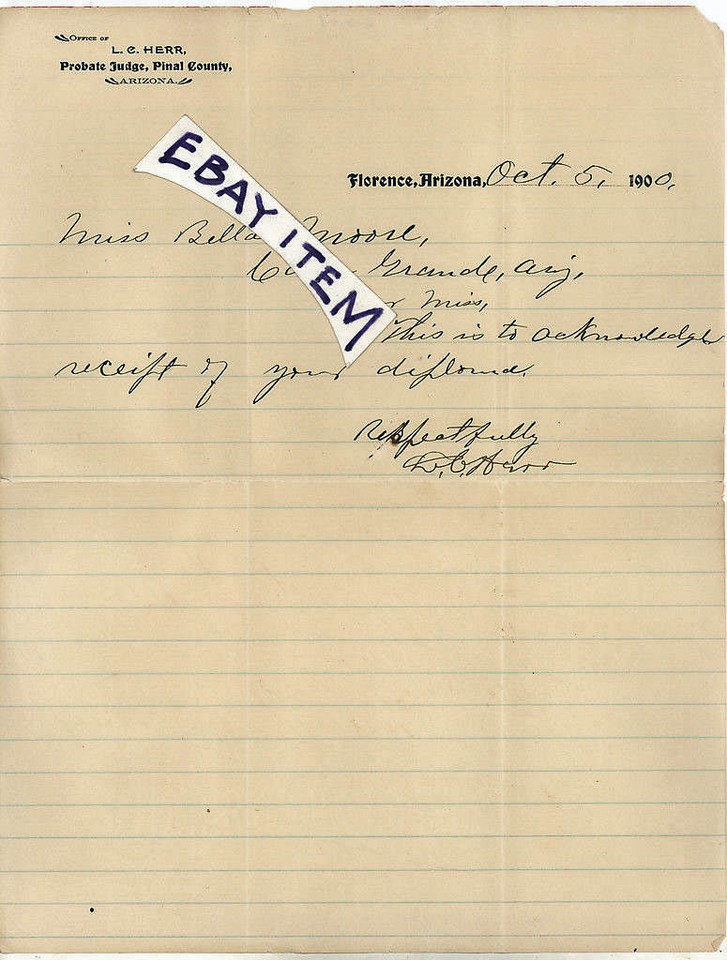 OFFICE OF
L. C. HERR,
Probate Judge, Pinal County,
ARIZONA.
EBAY ITEM
Florence, Arizona, Oct. 5, 1900.
Miss Bella Moore,
Grande, Ariz,
Miss,
This is to acknowledge
receipt of your diploma.
Respectfully
L. C. Herr